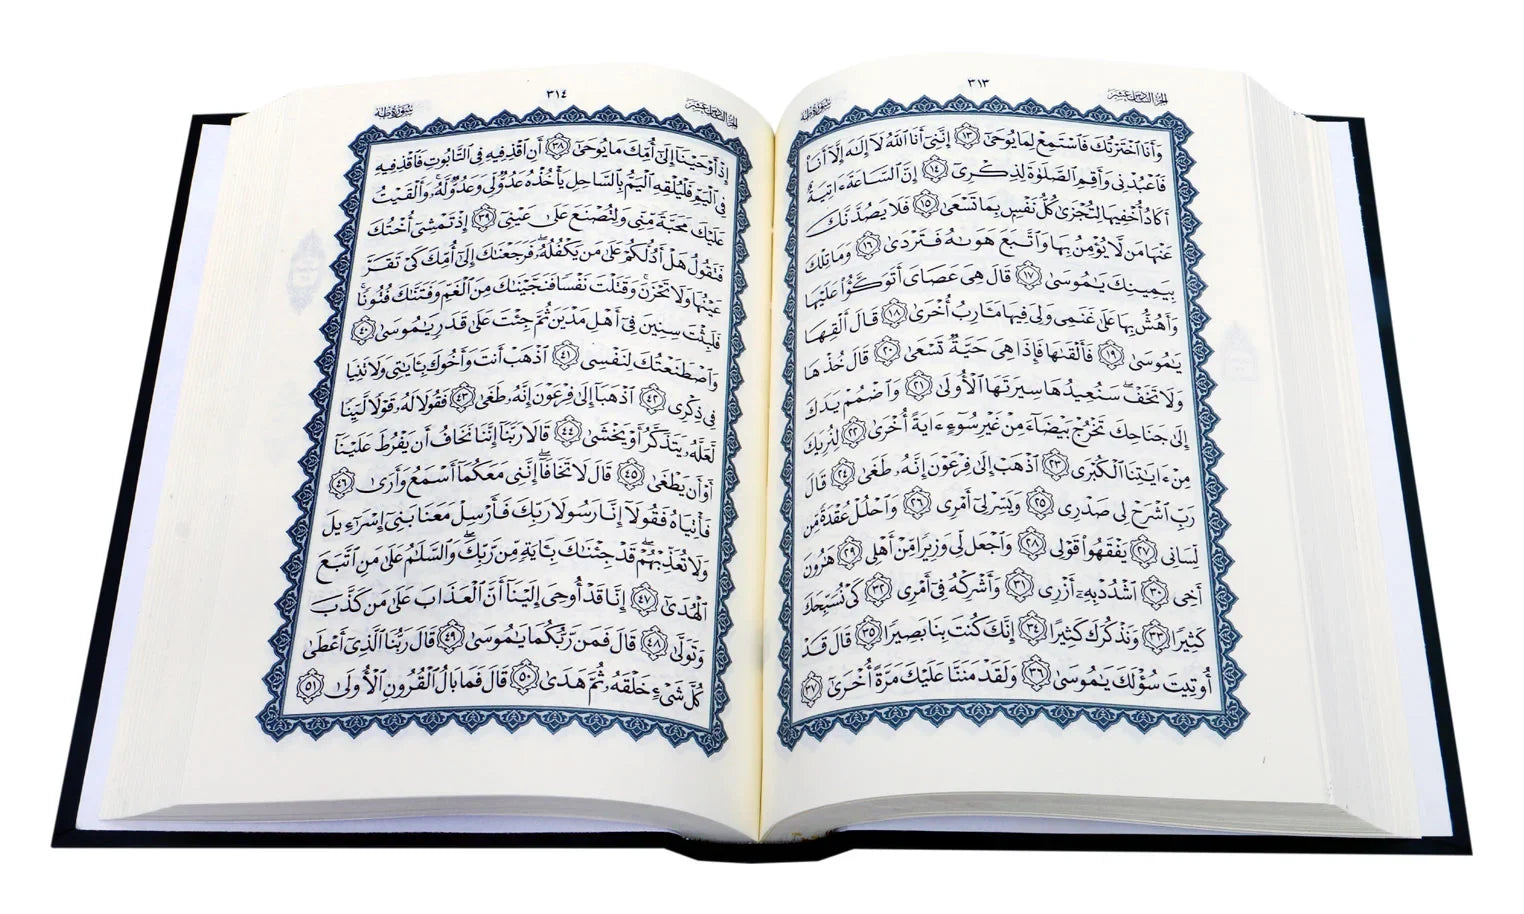 الجزء السادس عشر
٣١٣
سُورَةُ طه
وَأَنَا ٱخْتَرْتُكَ فَٱسْتَمِعْ لِمَا يُوحَىٰٓ ١٣ إِنَّنِىٓ أَنَا ٱللَّهُ لَآ إِلَٰهَ إِلَّآ أَنَا۠
فَٱعْبُدْنِى وَأَقِمِ ٱلصَّلَوٰةَ لِذِكْرِىٓ ١٤ إِنَّ ٱلسَّاعَةَ ءَاتِيَةٌ
أَكَادُ أُخْفِيهَا لِتُجْزَىٰ كُلُّ نَفْسٍۭ بِمَا تَسْعَىٰ ١٥ فَلَا يَصُدَّنَّكَ
عَنْهَا مَن لَّا يُؤْمِنُ بِهَا وَٱتَّبَعَ هَوَىٰهُ فَتَرْدَىٰ ١٦ وَمَا تِلْكَ
بِيَمِينِكَ يَٰمُوسَىٰ ١٧ قَالَ هِىَ عَصَاىَ أَتَوَكَّؤُا۟ عَلَيْهَا
وَأَهُشُّ بِهَا عَلَىٰ غَنَمِى وَلِىَ فِيهَا مَـَٔارِبُ أُخْرَىٰ ١٨ قَالَ أَلْقِهَا
يَٰمُوسَىٰ ١٩ فَأَلْقَىٰهَا فَإِذَا هِىَ حَيَّةٌ تَسْعَىٰ ٢٠ قَالَ خُذْهَا
وَلَا تَخَفْ ۖ سَنُعِيدُهَا سِيرَتَهَا ٱلْأُولَىٰ ٢١ وَٱضْمُمْ يَدَكَ
إِلَىٰ جَنَاحِكَ تَخْرُجْ بَيْضَآءَ مِنْ غَيْرِ سُوٓءٍ ءَايَةً أُخْرَىٰ ٢٢ لِنُرِيَكَ
مِنْ ءَايَٰتِنَا ٱلْكُبْرَى ٢٣ ٱذْهَبْ إِلَىٰ فِرْعَوْنَ إِنَّهُۥ طَغَىٰ ٢٤ قَالَ
رَبِّ ٱشْرَحْ لِى صَدْرِى ٢٥ وَيَسِّرْ لِىٓ أَمْرِى ٢٦ وَٱحْلُلْ عُقْدَةً مِّن
لِّسَانِى ٢٧ يَفْقَهُوا۟ قَوْلِى ٢٨ وَٱجْعَل لِّى وَزِيرًا مِّنْ أَهْلِى ٢٩ هَٰرُونَ
أَخِى ٣٠ ٱشْدُدْ بِهِۦٓ أَزْرِى ٣١ وَأَشْرِكْهُ فِىٓ أَمْرِى ٣٢ كَىْ نُسَبِّحَكَ
كَثِيرًا ٣٣ وَنَذْكُرَكَ كَثِيرًا ٣٤ إِنَّكَ كُنتَ بِنَا بَصِيرًا ٣٥ قَالَ قَدْ
أُوتِيتَ سُؤْلَكَ يَٰمُوسَىٰ ٣٦ وَلَقَدْ مَنَنَّا عَلَيْكَ مَرَّةً أُخْرَىٰٓ ٣٧
الجزء السادس عشر
٣١٤
سُورَةُ طه
إِذْ أَوْحَيْنَآ إِلَىٰٓ أُمِّكَ مَا يُوحَىٰٓ ٣٨ أَنِ ٱقْذِفِيهِ فِى ٱلتَّابُوتِ فَٱقْذِفِيهِ
فِى ٱلْيَمِّ فَلْيُلْقِهِ ٱلْيَمُّ بِٱلسَّاحِلِ يَأْخُذْهُ عَدُوٌّ لِّى وَعَدُوٌّ لَّهُۥ ۚ وَأَلْقَيْتُ
عَلَيْكَ مَحَبَّةً مِّنِّى وَلِتُصْنَعَ عَلَىٰ عَيْنِىٓ ٣٩ إِذْ تَمْشِىٓ أُخْتُكَ
فَتَقُولُ هَلْ أَدُلُّكُمْ عَلَىٰ مَن يَكْفُلُهُۥ ۖ فَرَجَعْنَٰكَ إِلَىٰٓ أُمِّكَ كَىْ تَقَرَّ
عَيْنُهَا وَلَا تَحْزَنَ ۚ وَقَتَلْتَ نَفْسًا فَنَجَّيْنَٰكَ مِنَ ٱلْغَمِّ وَفَتَنَّٰكَ فُتُونًا ۚ
فَلَبِثْتَ سِنِينَ فِىٓ أَهْلِ مَدْيَنَ ثُمَّ جِئْتَ عَلَىٰ قَدَرٍ يَٰمُوسَىٰ ٤٠
وَٱصْطَنَعْتُكَ لِنَفْسِى ٤١ ٱذْهَبْ أَنتَ وَأَخُوكَ بِـَٔايَٰتِى وَلَا تَنِيَا
فِى ذِكْرِى ٤٢ ٱذْهَبَآ إِلَىٰ فِرْعَوْنَ إِنَّهُۥ طَغَىٰ ٤٣ فَقُولَا لَهُۥ قَوْلًا لَّيِّنًا
لَّعَلَّهُۥ يَتَذَكَّرُ أَوْ يَخْشَىٰ ٤٤ قَالَا رَبَّنَآ إِنَّنَا نَخَافُ أَن يَفْرُطَ عَلَيْنَآ
أَوْ أَن يَطْغَىٰ ٤٥ قَالَ لَا تَخَافَآ ۖ إِنَّنِى مَعَكُمَآ أَسْمَعُ وَأَرَىٰ ٤٦
فَأْتِيَاهُ فَقُولَآ إِنَّا رَسُولَا رَبِّكَ فَأَرْسِلْ مَعَنَا بَنِىٓ إِسْرَٰٓءِيلَ
وَلَا تُعَذِّبْهُمْ ۖ قَدْ جِئْنَٰكَ بِـَٔايَةٍ مِّن رَّبِّكَ ۖ وَٱلسَّلَٰمُ عَلَىٰ مَنِ ٱتَّبَعَ
ٱلْهُدَىٰٓ ٤٧ إِنَّا قَدْ أُوحِىَ إِلَيْنَآ أَنَّ ٱلْعَذَابَ عَلَىٰ مَن كَذَّبَ
وَتَوَلَّىٰ ٤٨ قَالَ فَمَن رَّبُّكُمَا يَٰمُوسَىٰ ٤٩ قَالَ رَبُّنَا ٱلَّذِىٓ أَعْطَىٰ
كُلَّ شَىْءٍ خَلْقَهُۥ ثُمَّ هَدَىٰ ٥٠ قَالَ فَمَا بَالُ ٱلْقُرُونِ ٱلْأُولَىٰ ٥١